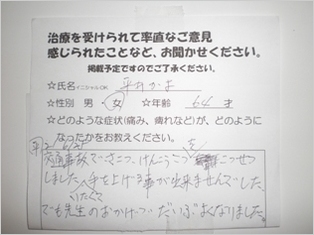 治療を受けられて率直なご意見
感じられたことなど、お聞かせください。
掲載予定ですのでご了承ください。
☆氏名 イニシャルOK 平井かよ
☆性別 男・女 年齢 64 才
☆どのような症状(痛み、痺れなど)が、どのように
なったかをお教えください。
交通事故でさこつ、けんこうこつを
こっせつ
しました 手を上げる事が出来ませんでした。
いたくて
でも先生のおかげでだいぶよくなりました。